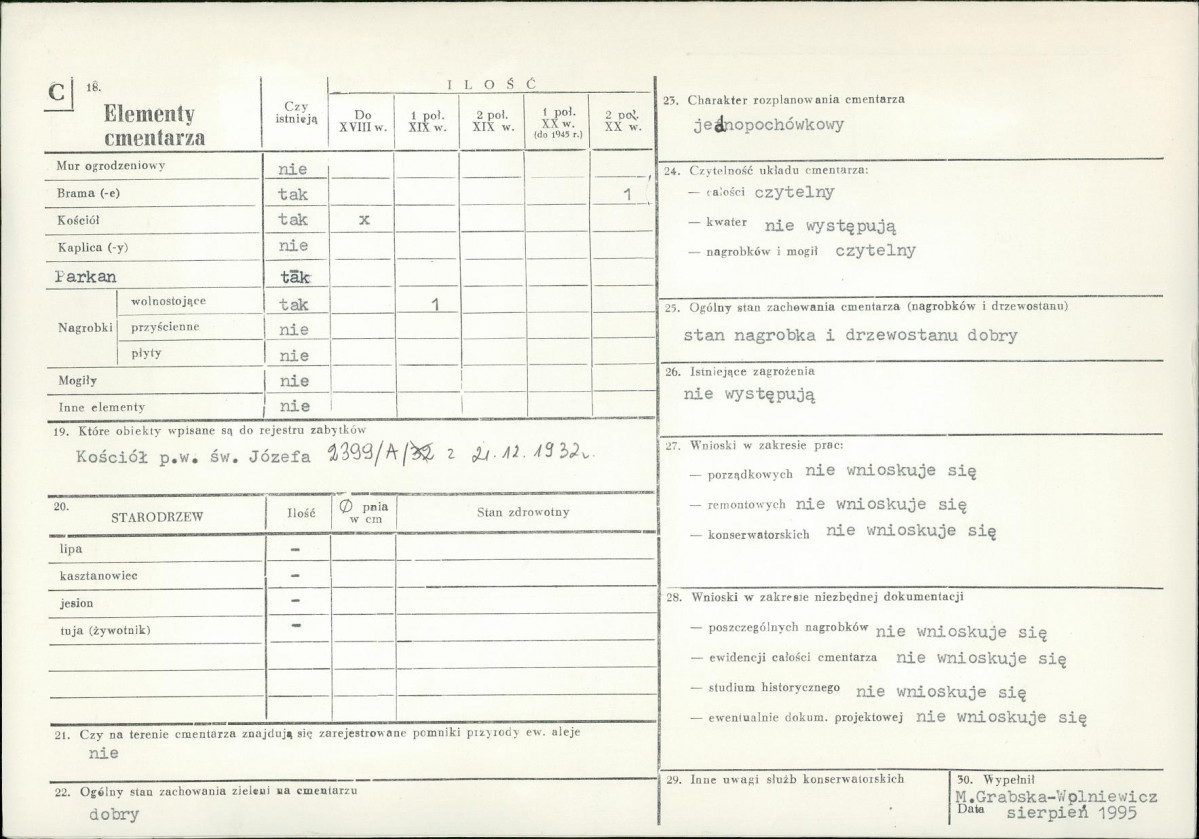 C 18. Elementy cmentarza
Czy istnieją
I L O Ś Ć
Do XVIII w.
1 poł. XIX w.
2 poł. XIX w.
1 poł. XX w. (do 1945 r.)
2 poł. XX w.
Mur ogrodzeniowy nie
Brama (-e) tak 1
Kościół tak x
Kaplica (-y) nie
Parkan tak
Nagrobki
wolnostojące tak 1
przyścienne nie
płyty nie
Mogiły nie
Inne elementy nie
19. Które obiekty wpisane są do rejestru zabytków
Kościół p.w. św. Józefa 2399/A/32 z 21.12.1932r.
20. STARODRZEW
Ilość
Ø pnia w cm
Stan zdrowotny
lipa -
kasztanowiec -
jesion -
tuja (żywotnik) -
21. Czy na terenie cmentarza znajdują się zarejestrowane pomniki przyrody ew. aleje
nie
22. Ogólny stan zachowania zieleni na cmentarzu
dobry
23. Charakter rozplanowania cmentarza
jednopochówkowy
24. Czytelność układu cmentarza:
— całości czytelny
— kwater nie występują
— nagrobków i mogił czytelny
25. Ogólny stan zachowania cmentarza (nagrobków i drzewostanu)
stan nagrobka i drzewostanu dobry
26. Istniejące zagrożenia
nie występują
27. Wnioski w zakresie prac:
— porządkowych nie wnioskuje się
— remontowych nie wnioskuje się
— konserwatorskich nie wnioskuje się
28. Wnioski w zakresie niezbędnej dokumentacji
— poszczególnych nagrobków nie wnioskuje się
— ewidencji całości cmentarza nie wnioskuje się
— studium historycznego nie wnioskuje się
— ewentualnie dokum. projektowej nie wnioskuje się
29. Inne uwagi służb konserwatorskich
30. Wypełnił
M.Grabska-Wolniewicz
Data sierpień 1995